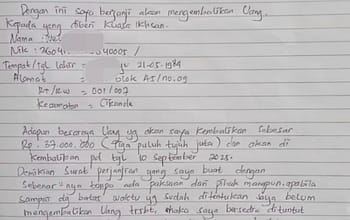 Dengan ini saya berjanji akan mengembalikan Uang.
Kepada yang diberi Kuasa Ikhsan.
Nama :
Nik : 3604 40005 /
Tempat/tgl lahir : 21-05-1984
Alamat : Blok AI/no.09
Rt/Rw = 001/007
Kecamatan = Cikande
Adapun besarnya Uang yg akan saya kembalikan sebesar
Rp. 37.000.000 (Tiga puluh tujuh juta) dan akan di
Kembalikan pd tgl 10 September 2025.
Demikian Surat perjanjian yang saya buat dengan
Sebenar-nya tanpa ada paksaan dari pihak manapun. apabila
Sampai dg batas waktu yg sudah ditentukan saya belum
mengembalikan Uang trsbt, maka saya bersedia dituntut